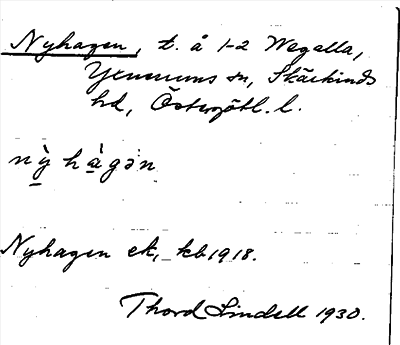 Nyhagen, t. å 1-2 Wegalla,
Yxnerums sn, Skärkinds
hd, Östergötl. l.
nỳ hàgən
Nyhagen ek, kb 1918.
Thord Lindell 1930.